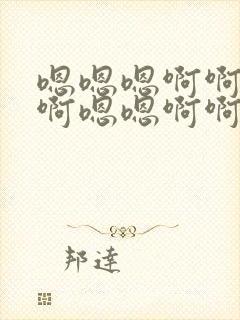 嗯嗯嗯啊啊
啊嗯嗯啊啊
邦達